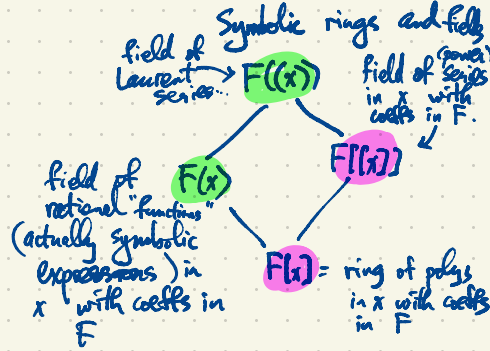 Symbolic rings and fields
field of
Laurent
series...
F((x))
field of (power)
series
in x with
coeffs in F.
F[[x]]
field of
rational "functions"
(actually symbolic
expressions) in
x with coeffs in
F
F(x)
F[x] = ring of polys
in x with coeffs
in F